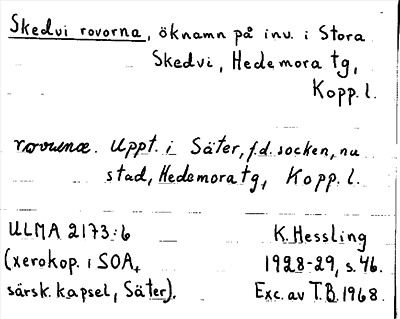 Skedvi rovorna, öknamn på inv. i Stora
Skedvi, Hedemora tg,
Kopp. l.
Uppt. i Säter, f.d. socken, nu
stad, Hedemora tg, Kopp. l.
ULMA 2173:6 K. Hessling
(xerokop. i SOA, 1928-29, s. 46.
särsk. kapsel, Säter). Exc. av T.B. 1968.